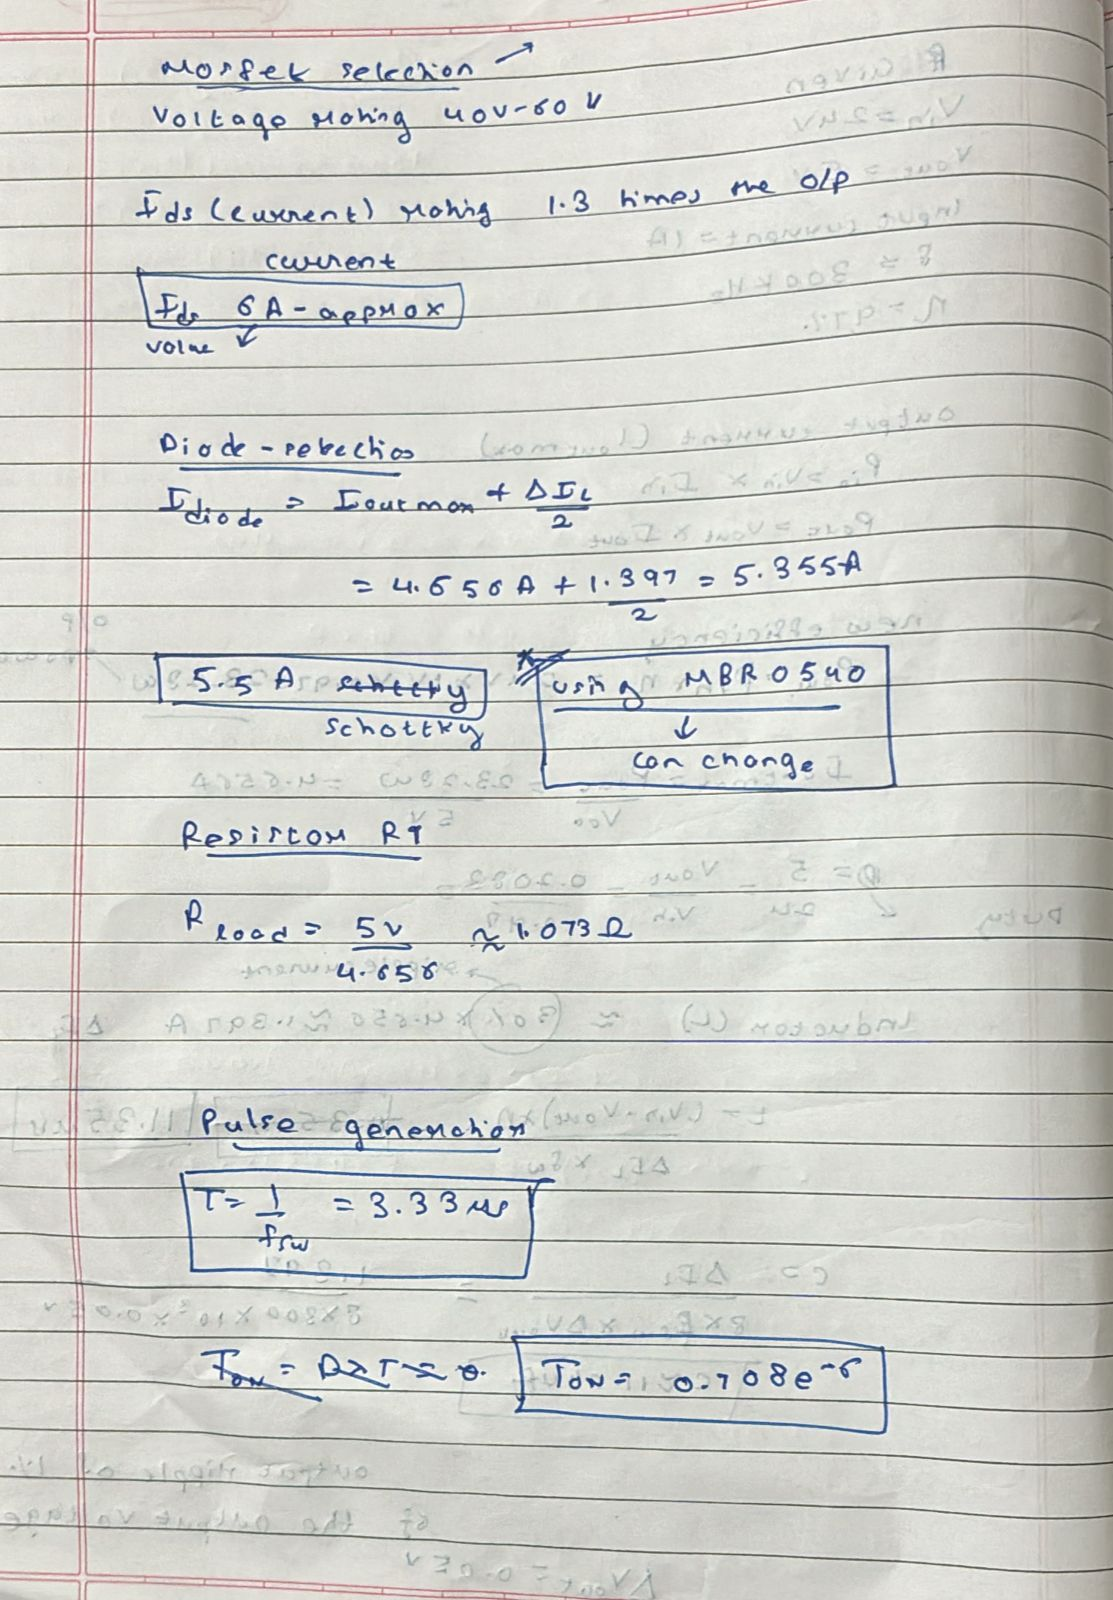 Mosfet selection →
Voltage rating 40V-60V
Ids (current) rating 1.3 times the O/P
current
Ids 6A-approx
value
Diode-selection
Idiode = Ioutmax + ΔIL/2
= 4.656A + 1.397/2 = 5.355A
5.5A schottky
schottky
using MBR0540
↓
can change
Resistor RT
Rload = 5V/4.656 ≈ 1.073Ω
Pulse generation
T = 1/fsw = 3.33us
TON = D×T = 0.
TON = 0.708e-6